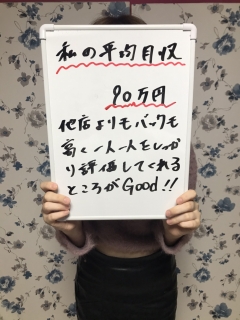 私の平均月収
90万円
他店よりもバックも
高く、一人一人をしっか
り評価してくれる
ところがGood!!